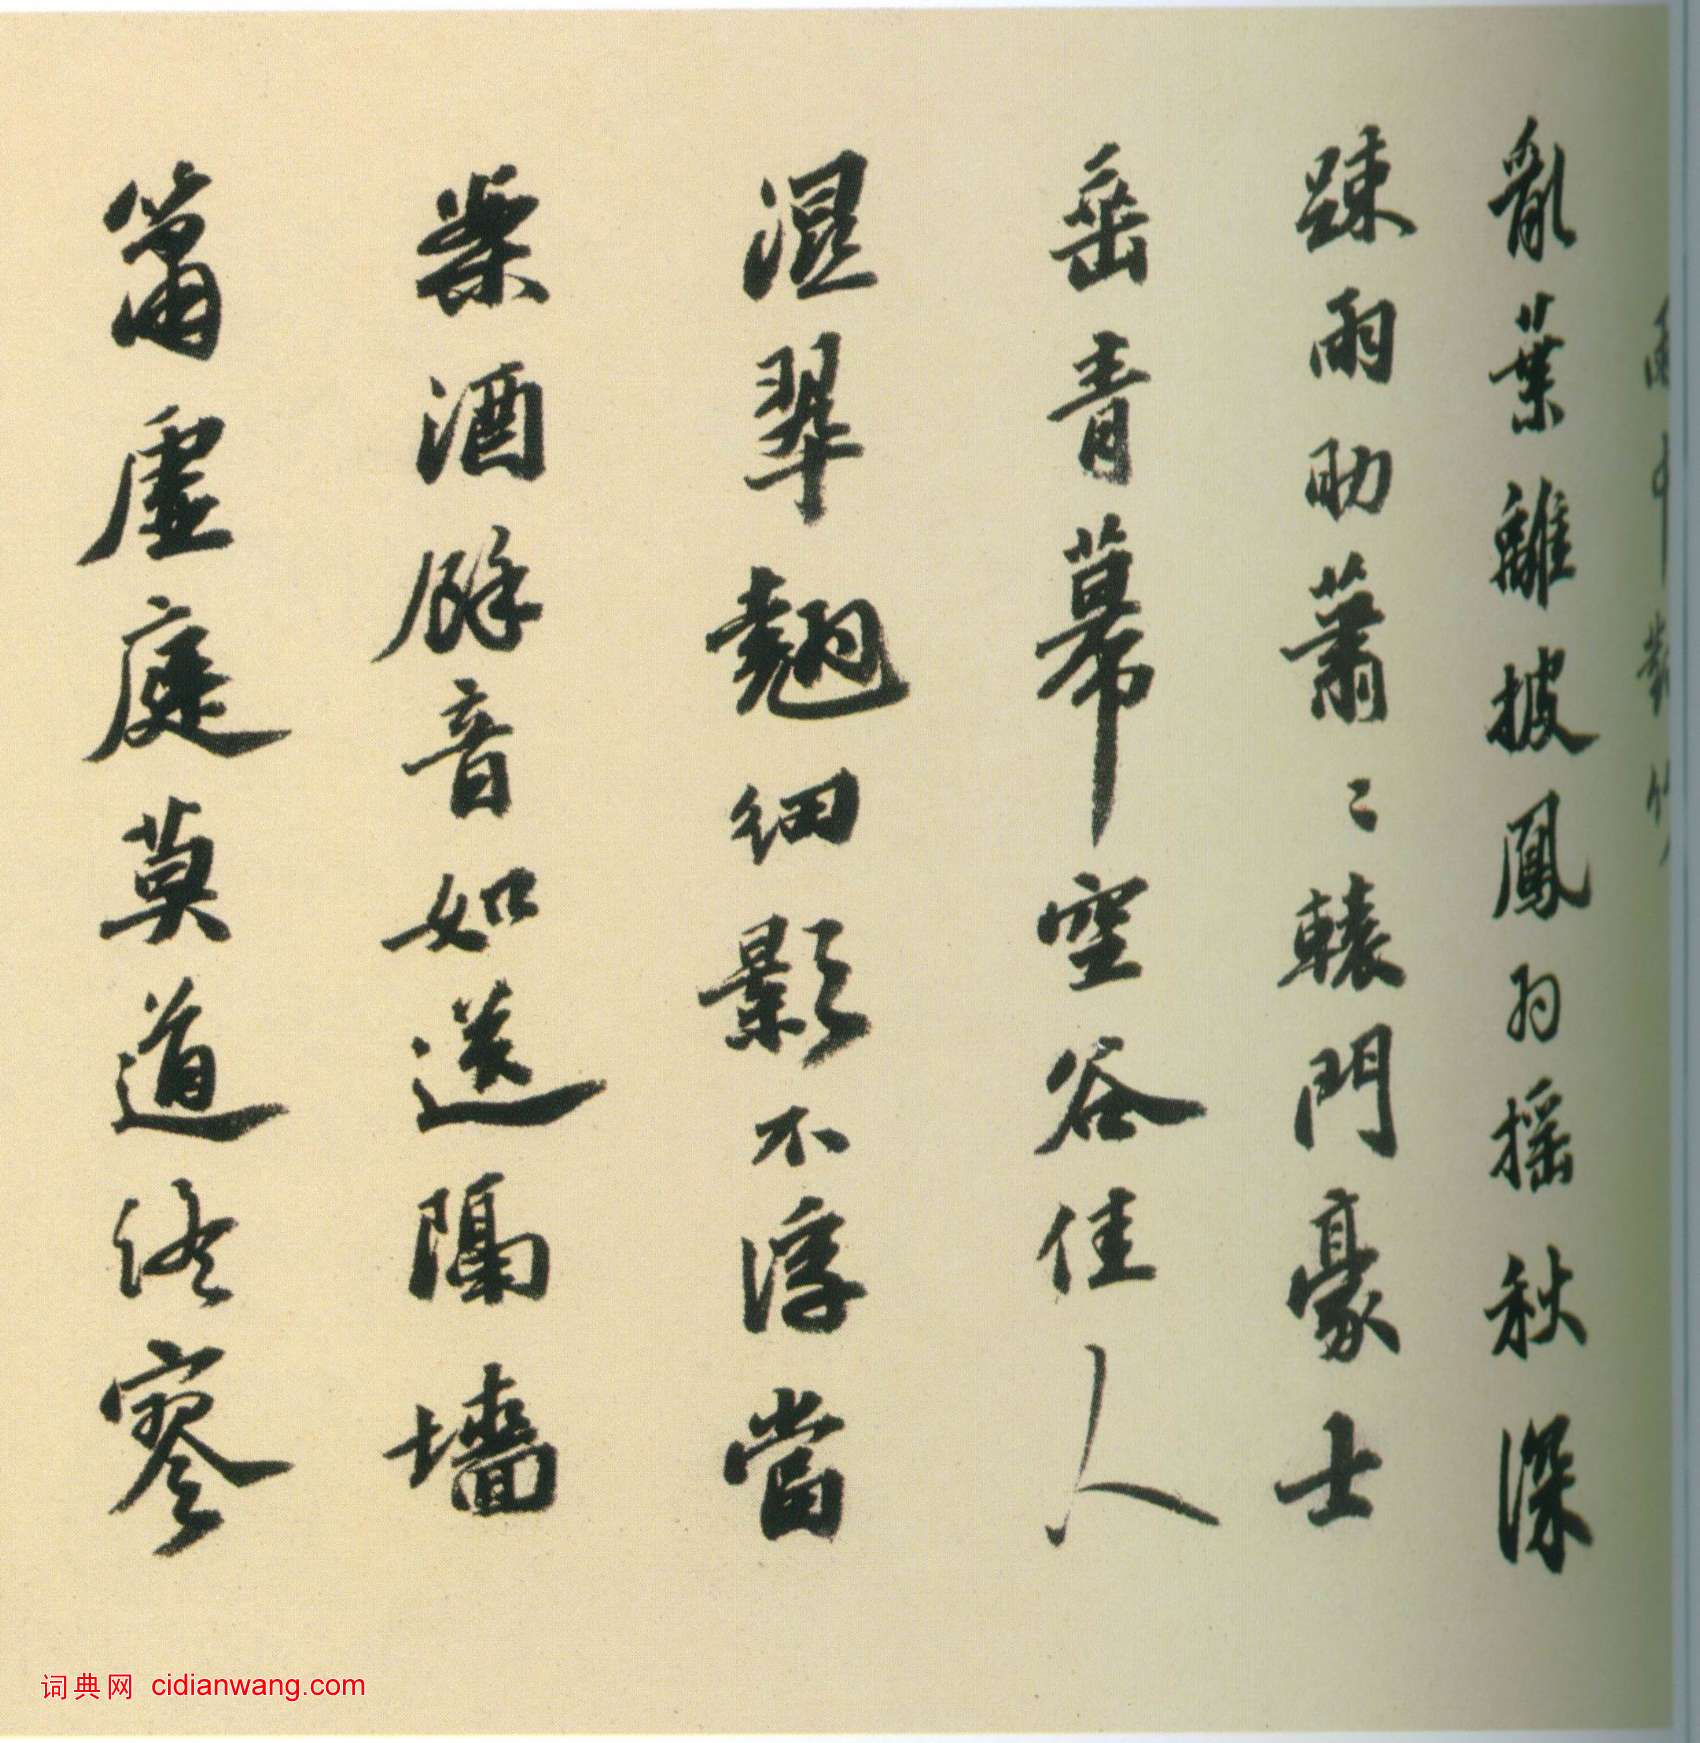 雨中對竹
亂葉離披鳳羽摇秋深
疎雨助蕭〻轅門豪士
垂青幕空谷佳人
濕翠翹細影不浮當
檠酒餘音如送隔墻
簫虛庭莫道終寥
词典网 cidianwang.com